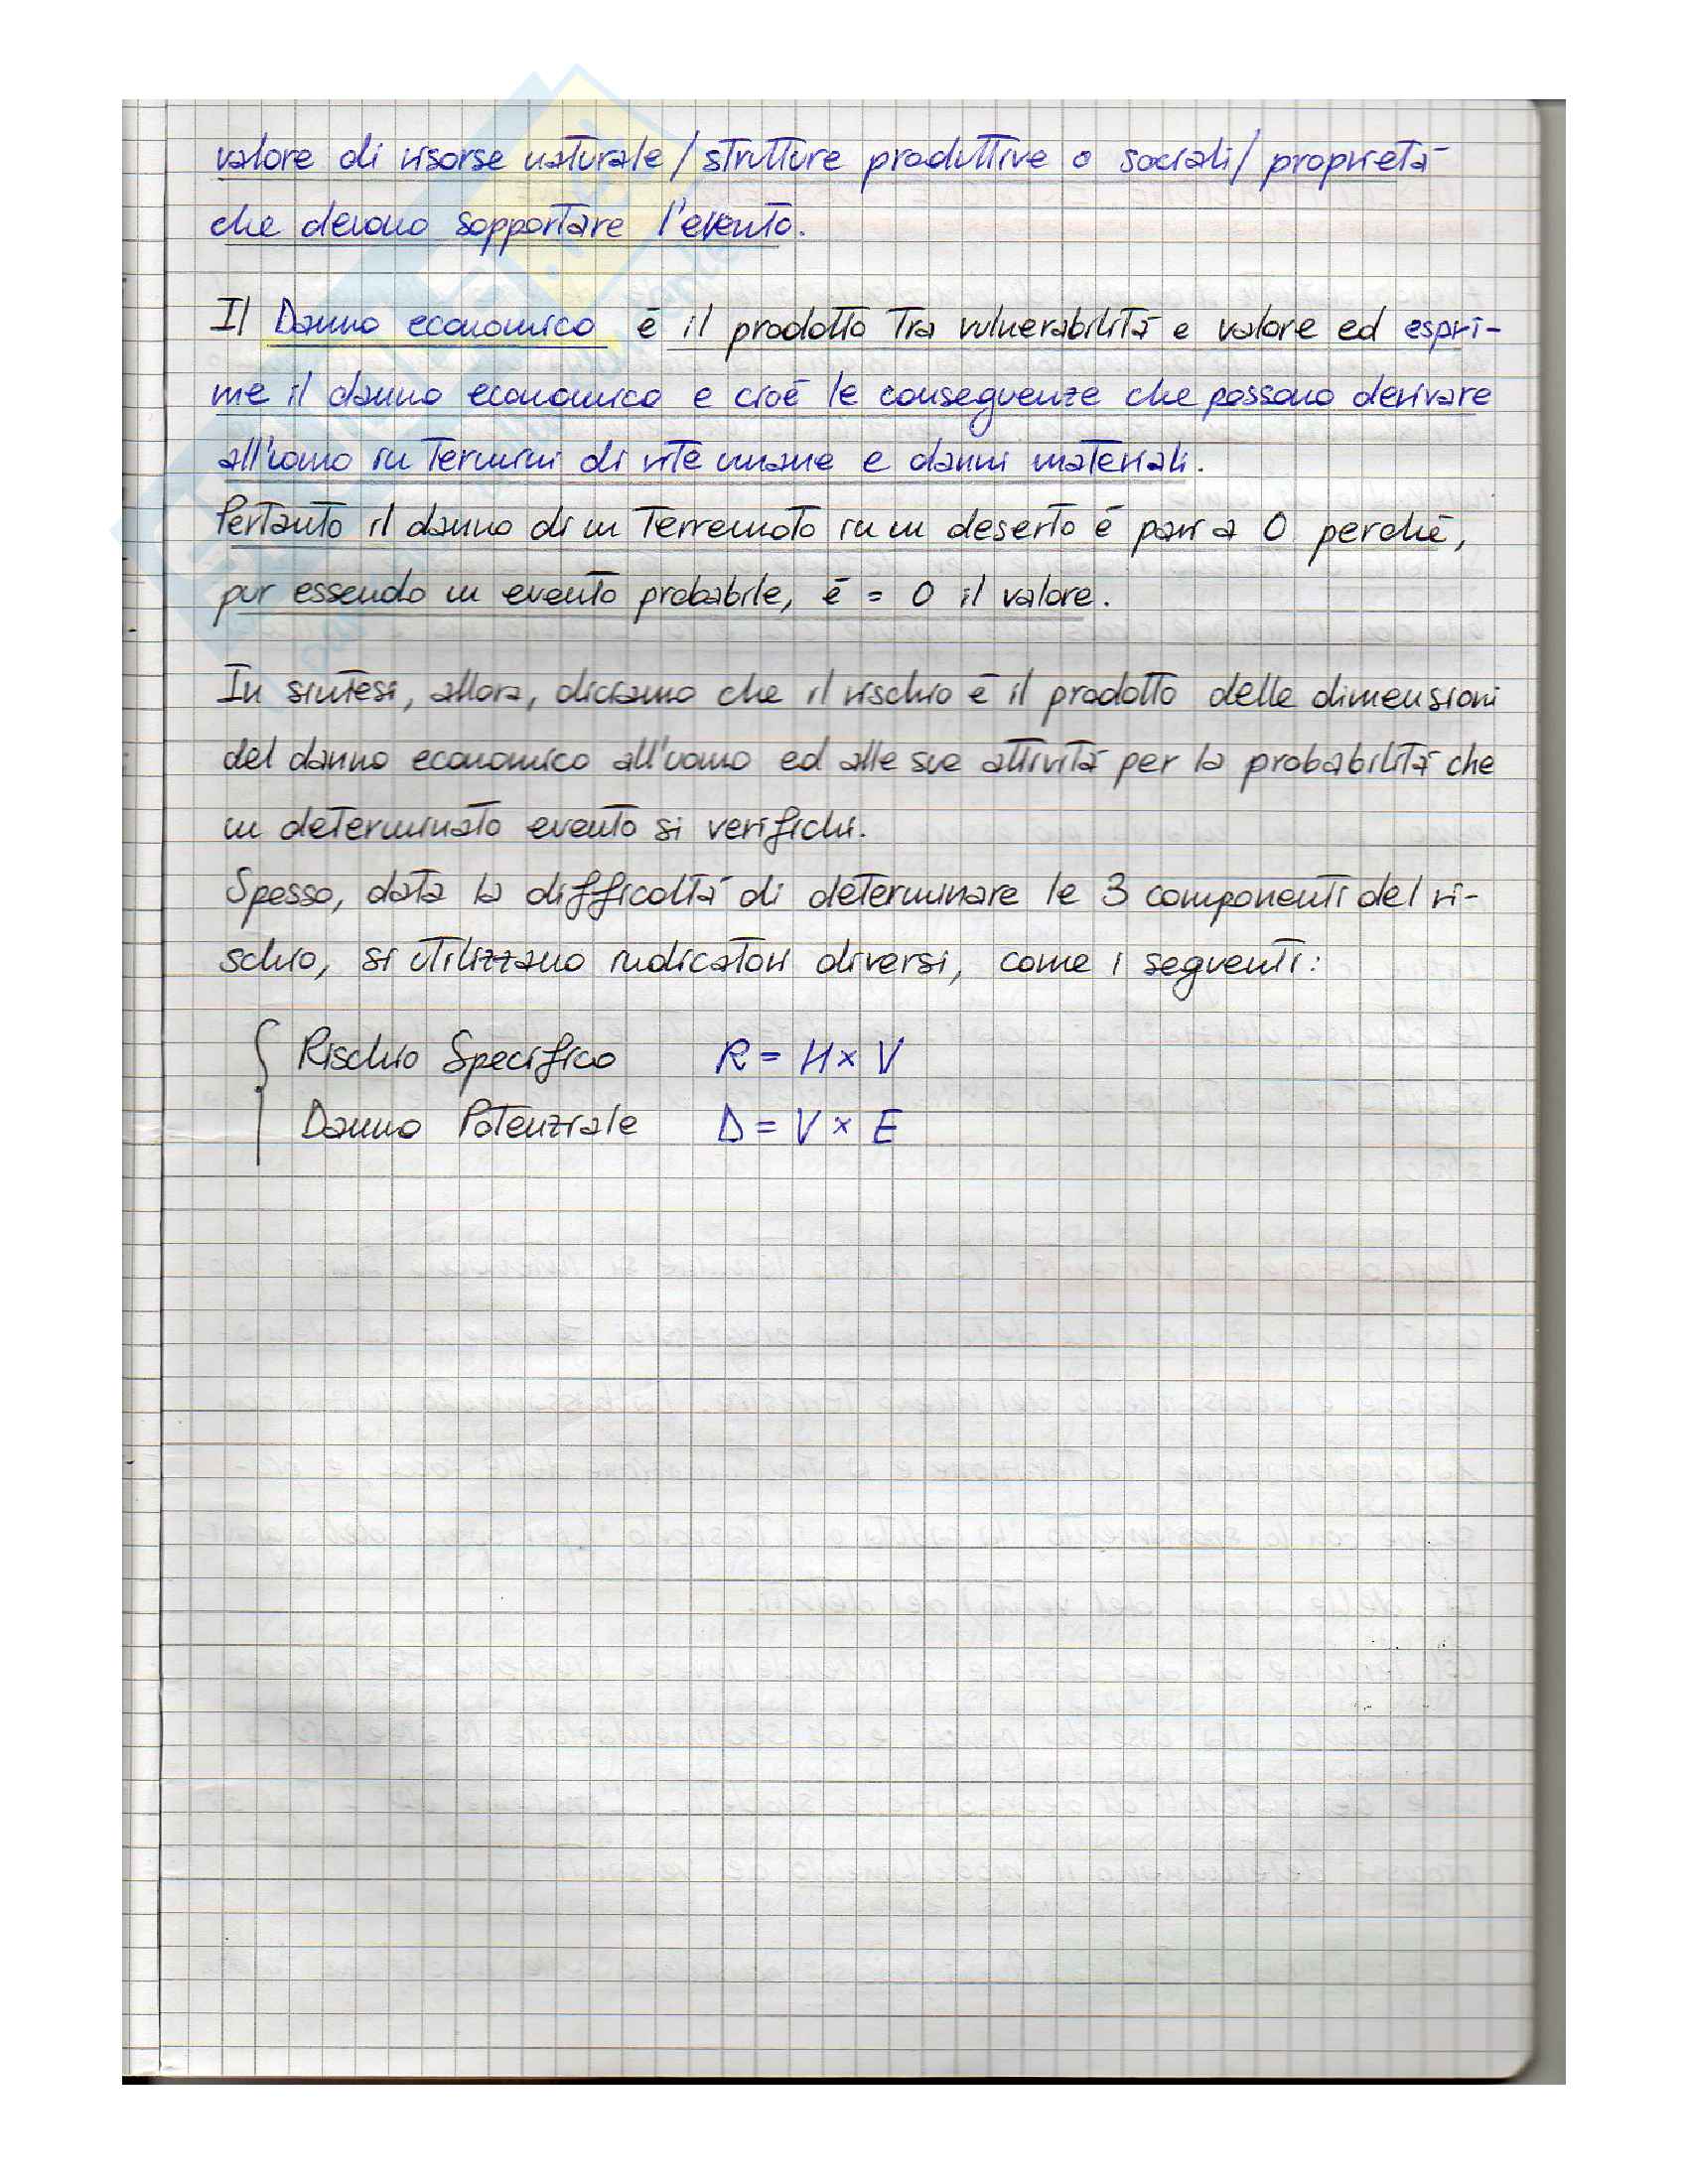 valore di risorse naturale / strutture produttive o sociali / proprietà
che devono sopportare l'evento.
Il Danno economico è il prodotto tra vulnerabilità e valore ed espri-
me il danno economico e cioè le conseguenze che possono derivare
all'uomo in termini di vite umane e danni materiali.
Pertanto il danno di un terremoto in un deserto è pari a 0 perché,
pur essendo un evento probabile, è = 0 il valore.
In sintesi, allora, diciamo che il rischio è il prodotto delle dimensioni
del danno economico all'uomo ed alle sue attività per la probabilità che
un determinato evento si verifichi.
Spesso, data la difficoltà di determinare le 3 componenti del ri-
schio, si utilizzano indicatori diversi, come i seguenti:
Rischio Specifico R = H x V
Danno Potenziale D = V x E